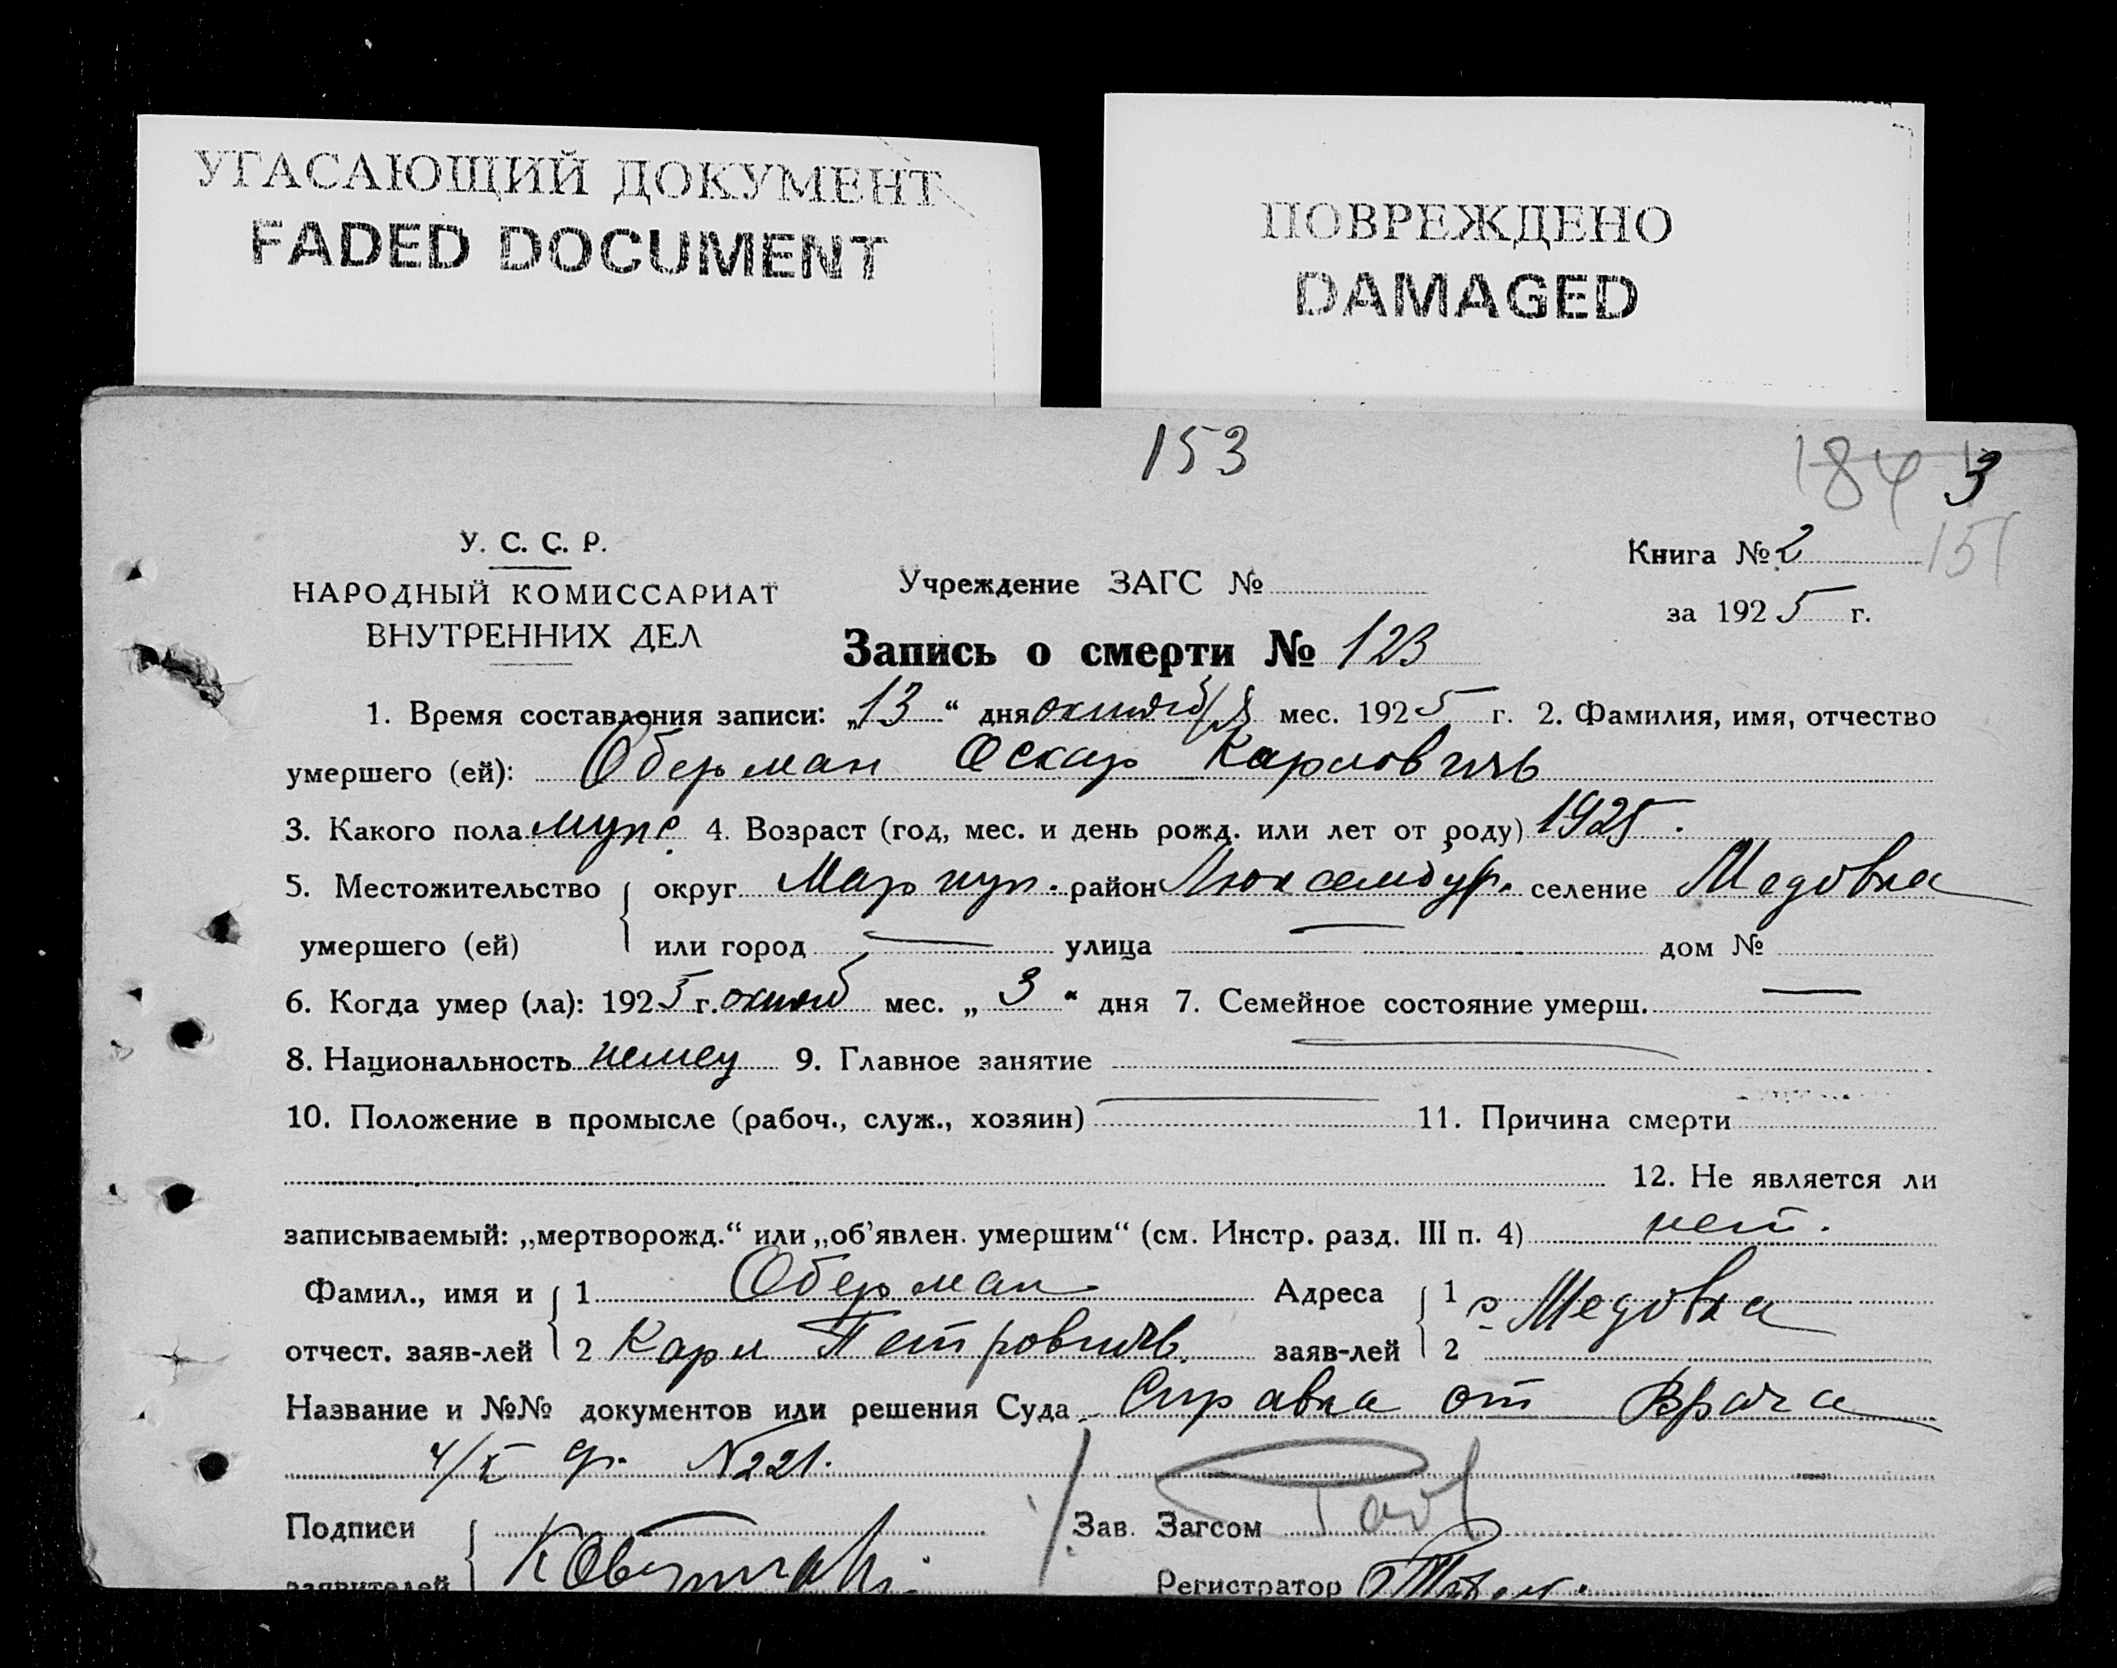 УГАСАЮЩИЙ ДОКУМЕНТ
FADED DOCUMENT
ПОВРЕЖДЕНО
DAMAGED
153
184 3
151
У. С. С. Р.
НАРОДНЫЙ КОМИССАРИАТ
ВНУТРЕННИХ ДЕЛ
Учреждение ЗАГС №
Книга № 2
за 1925 г.
Запись о смерти № 123
1. Время составления записи: „13“ дня октября мес. 1925 г. 2. Фамилия, имя, отчество
умершего (ей): Оберман Оскар Карловичь
3. Какого пола муж. 4. Возраст (год, мес. и день рожд. или лет от роду) 1925.
5. Местожительство округ Мариуп. район Люксембур. селение Медовка
умершего (ей) или город — улица — дом №
6. Когда умер (ла): 1925 г. октяб мес. „3“ дня 7. Семейное состояние умерш. —
8. Национальность немец 9. Главное занятие —
10. Положение в промысле (рабоч., служ., хозяин) — 11. Причина смерти
12. Не является ли
записываемый: „мертворожд.“ или „об'явлен. умершим“ (см. Инстр. разд. III п. 4) нет.
Фамил., имя и 1 Оберман Адреса 1 с. Медовка
отчест. заяв-лей 2 Карл Петровичь. заяв-лей 2
Название и №№ документов или решения Суда Справка от Врача
4/X N221.
Подписи Зав. Загсом
заявителей Регистратор